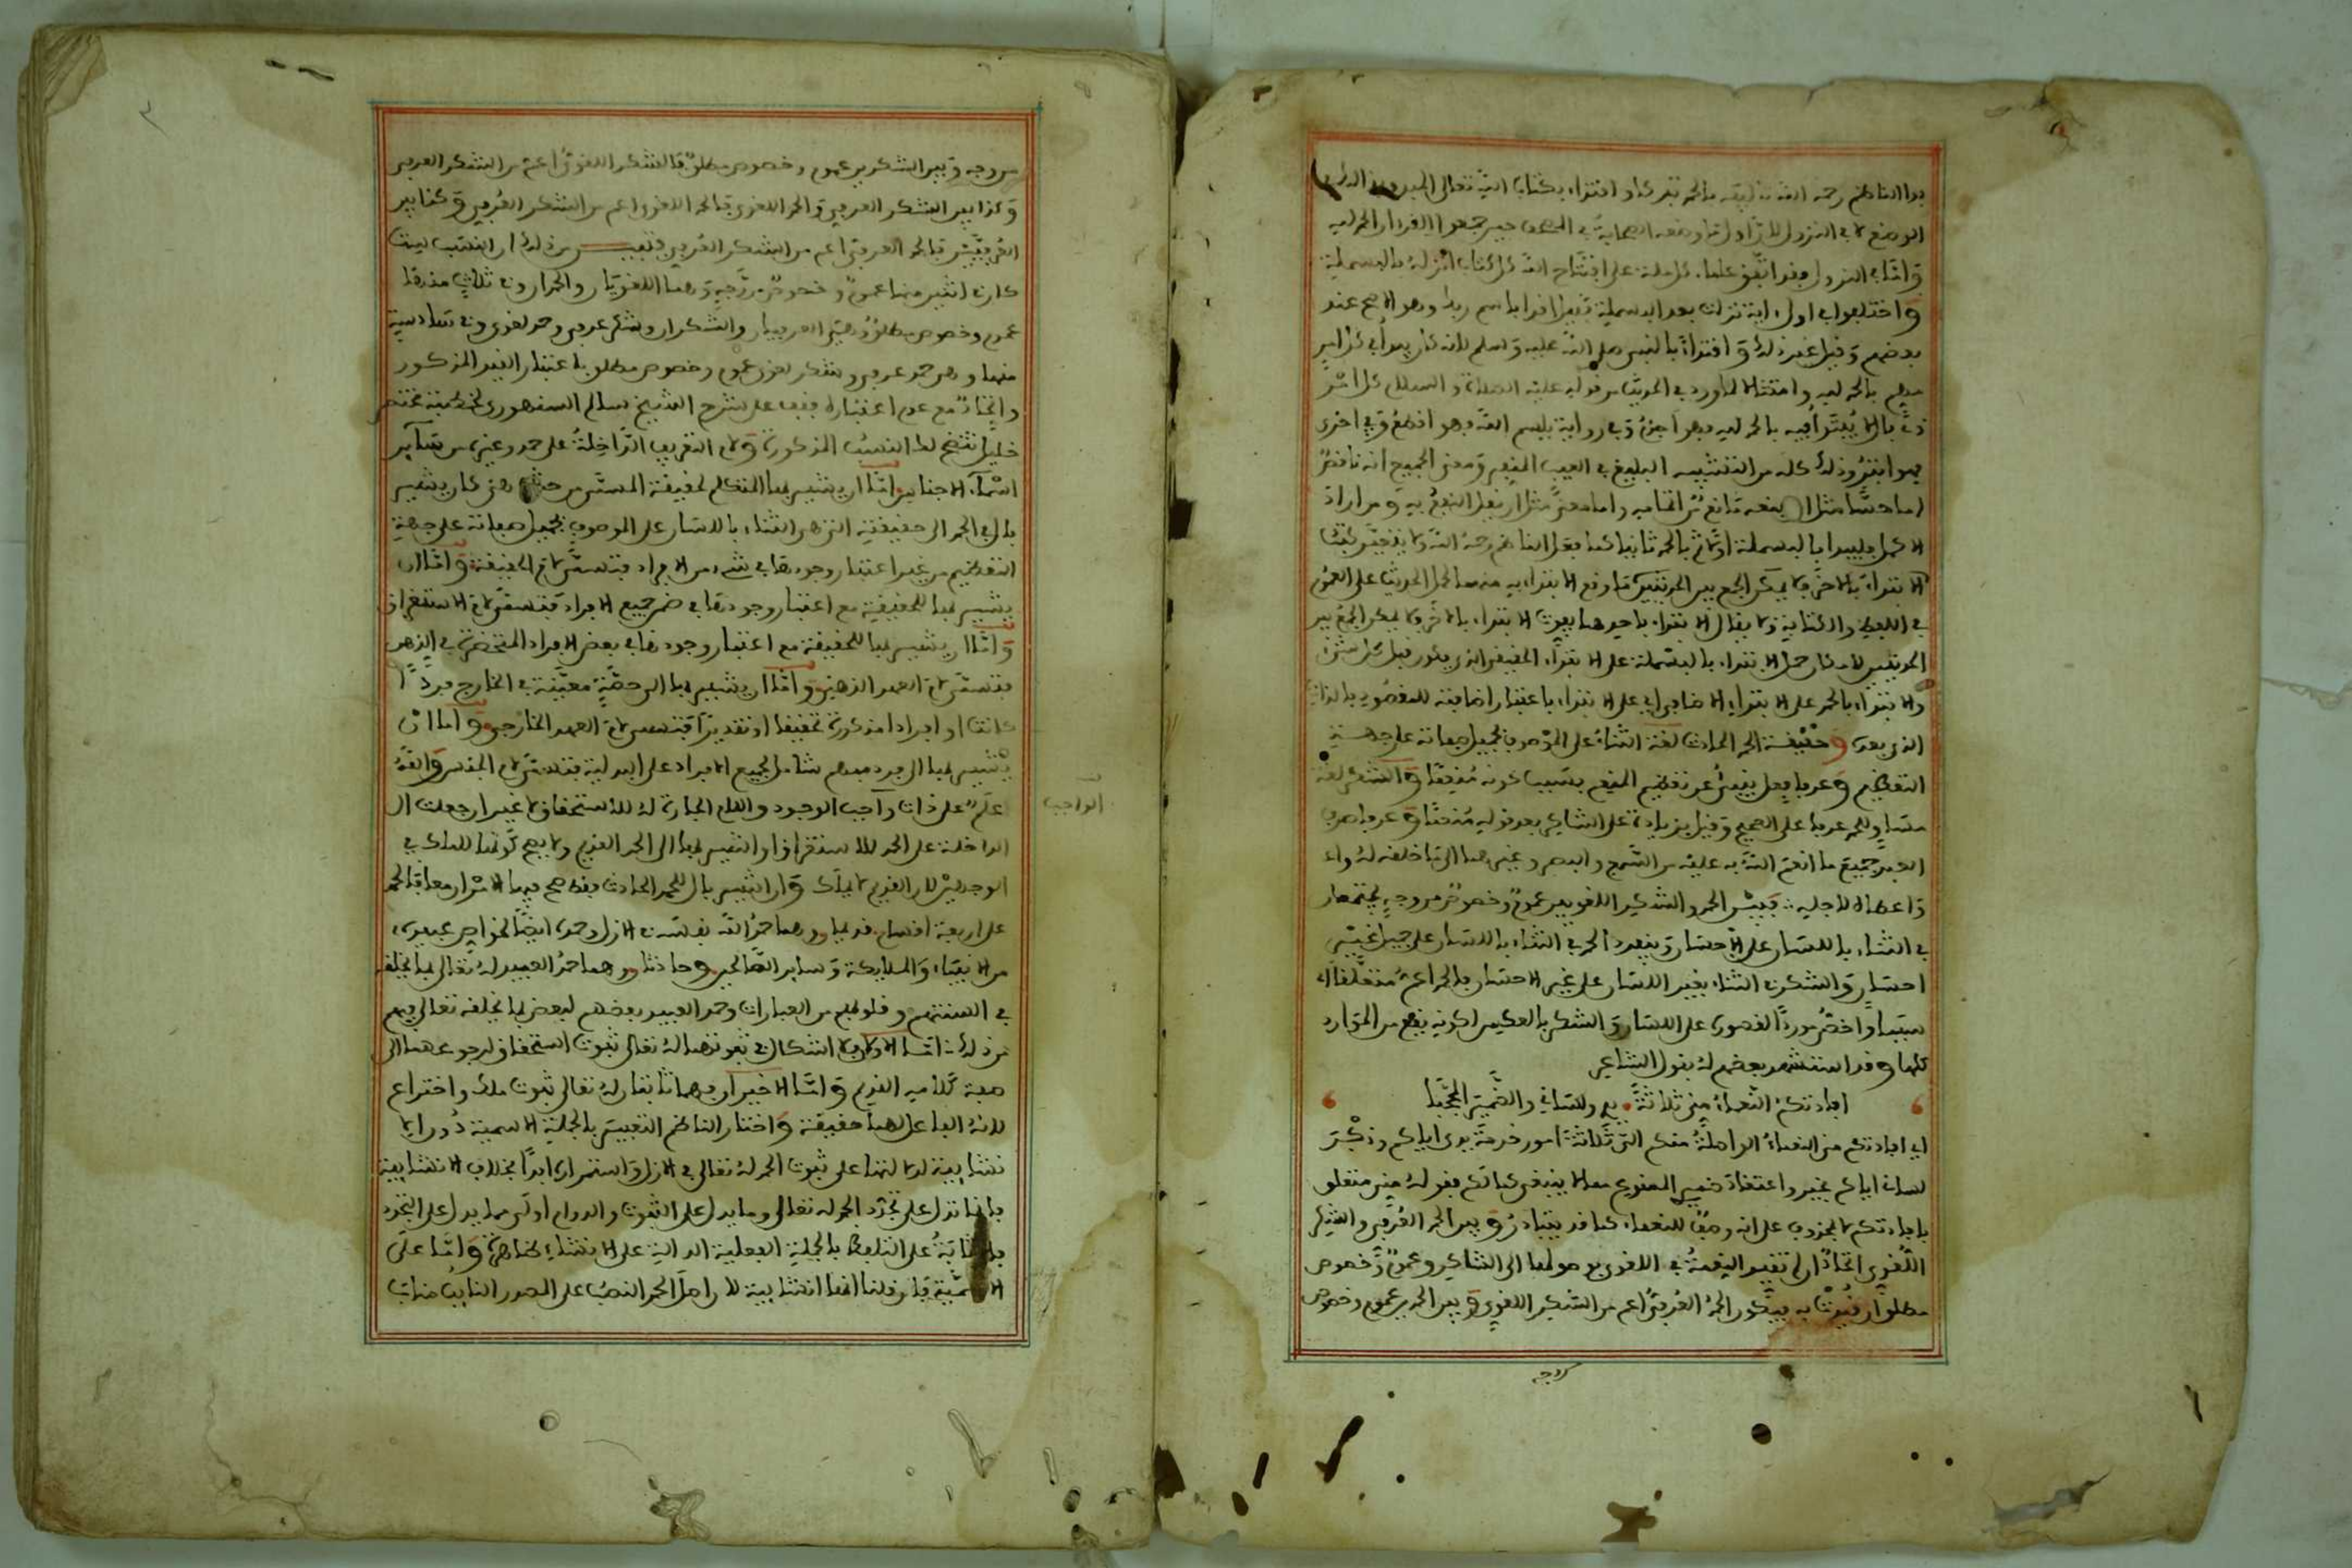 بدا الناظم رحمه الله تاليفه بالحمد تبركا و اقتداء بكتاب الله تعالى المبدو به في
الوضع لا في النزول للاتفاق وضعه الصحابة في المصحف حين جمعوا القرءان الحمد لله
و اما في النزول فقد اتفق علماء كل ملة على افتتاح الله كل كتاب انزله بالبسملة
و اختلفوا في اول ءاية نزلت بعد البسملة فقيل اقرا باسم ربك وهو الاصح عند
بعضهم و قيل غير ذلك و اقتداء بالنبي صلى الله عليه و سلم لانه كان يبدا في كل امر
مهم بالحمد لله و امتثالا لما ورد في الحديث من قوله عليه الصلاة و السلام كل امر
ذي بال لا يبتدا فيه بالحمد لله فهو اجذم و في رواية ببسم الله فهو اقطع و في اخرى
فهو ابتر و ذلك كله من التشبيه البليغ في العيب المنفر و معنى الجميع انه ناقص
اما حسا مثل ان يمنعه مانع من اتمامه و اما معنى مثل ان يقل النفع به و من اراد
الاكمل فليبدا بالبسملة اولا ثم بالحمد ثانيا كما فعل الناظم رحمه الله و لا يتقيد
الابتداء بلا حرف لا يمكن الجمع بين الحديثين ما وقع الابتداء به منهما لحمل الحديث على العموم
في اللفظ و الكتابة و لا يقال الابتداء باحدهما يفوت الابتداء بالاخر فلا يمكن الجمع بين
الحديثين لامكان حمل الابتداء بالبسملة على الابتداء الحقيقي الذي يكون قبل كل شيء
و الابتداء بالحمد على الابتداء الاضافي اي على الابتداء باعتبار اضافته للمقصود بالذات
الذي بعده و حقيقة الحمد الحادث لغة الثناء على الموصوف بجميل صفاته على جهة
التعظيم و عرفا فعل ينبئ عن تعظيم المنعم بسبب كونه منعما و الشكر لغة
مساو للحمد عرفا على الصحيح و قيل بزيادة على الشاكر بعد قوله منعما و عرفا صرف
العبد جميع ما انعم الله به عليه من السمع و البصر و غيرهما الى ما خلقه له و
اعطاه لاجله فبين الحمد و الشكر اللغويين عموم و خصوص من وجه يجتمعان
في الثناء باللسان على الاحسان و ينفرد الحمد في الثناء باللسان على جميل غير
احسان و الشكر في الثناء بغير اللسان على غير الاحسان فالحمد اعم متعلقا اي
سببا و اخص موردا لقصوره على اللسان و الشكر بالعكس لكونه يقع من الموارد
كلها و قد استشهد بعضهم له بقول الشاعر
افادتكم النعماء مني ثلاثة يدي و لساني و الضمير المحجبا
اي افادتكم مني النعماء الواصلة منكم الي ثلاثة امور خدمة يدي اياكم و ذكر
لساني اياكم بخير و اعتقاد ضمير الممنوع مما لا ينبغي لكم فقوله مني متعلق
بافادتكم لا بمحذوف على انه وصف للنعماء كما قد يتبادر و بين الحمد العرفي و الشكر
اللغوي اتحاد ان لم تقيد النعمة في اللغوي بوصولها الى الشاكر و عموم و خصوص
مطلق ان قيدت به فيكون الحمد العرفي اعم من الشكر اللغوي و بين الحمدين عموم و خصوص
من وجه
من وجه و بين الشكرين عموم و خصوص مطلق فالشكر اللغوي اعم من الشكر العرفي
و كذا بين الشكر العرفي و الحمد اللغوي فالحمد اللغوي اعم من الشكر العرفي و كذا بين
العرفيين فالحمد العرفي اعم من الشكر العرفي فتلخص من ذلك ان النسب ست
كان في اثنين منها عموم و خصوص من وجه و هما اللغويان و الحمدان و في ثلاث منها
عموم و خصوص مطلق و هي العرفيان و الشكران و شكر عرفي و حمد لغوي و في سادسة
منها و هي حمد عرفي و شكر لغوي عموم و خصوص مطلق باعتبار القيد المذكور
و اتحاد مع عدم اعتباره فقف على شرح الشيخ سالم السنهوري لخطبة مختصر
خليل تتضح لك النسب المذكورة و لام التعريف الداخلة على حمد و غيره من سائر
اسماء الاجناس اما ان يشير بها المتكلم لحقيقة المسمى من حيث هي كان يشير
بال في الحمد الى حقيقته التي هي الثناء باللسان على الموصوف بجميل صفاته على جهة
التعظيم من غير اعتبار وجودها في شيء من الافراد فتسمى لام الحقيقة و اما ان
يشير بها للحقيقة مع اعتبار وجودها في ضمن جميع الافراد فتسمى لام الاستغراق
و اما ان يشير بها للحقيقة مع اعتبار وجودها في بعض الافراد المتحضر في الذهن
فتسمى لام العهد الذهني و اما ان يشير بها الى حصة معينة في الخارج فردا
كانت او افرادا مذكورة تحقيقا او تقديرا فتسمى لام العهد الخارجي و اما ان
يشير بها الى فرد مبهم شامل لجميع الافراد على البدلية فتسمى لام الجنس و الله
علم على ذات واجب الوجود و اللام الجارة له للاستحقاق لا غير ان جعلت ال
الواجب
الداخلة على الحمد للاستغراق او اشير بها الى الحمد القديم و لا يصح كونها للملك في
الوجهين لان القديم لا يملك و ان اشير بال للحمد الحادث فقط صح فيها الامران معا فالحمد
على اربعة اقسام قديمان و هما حمد الله نفسه في الازل و حمده ايضا لخواص عبيده
من الانبياء و الملائكة و سائر الصالحين و حادثان و هما حمد العبيد له تعالى بما يخلقه
في السنتهم و قلوبهم من العبارات و حمد العبيد بعضهم لبعض بما يخلقه تعالى فيهم
من ذلك اما الاولان فلا اشكال في ثبوتهما له تعالى ثبوت استحقاق لرجوعهما الى
صفة كلامه القديم و اما الاخيران فهما ثابتان له تعالى ثبوت ملك و اختراع
لانه الفاعل لهما حقيقة و اختار الناظم التعبير بالجملة الاسمية دون
انشائية لدلالتها على ثبوت الحمد له تعالى في الازل و استمراره ابدا بخلاف الانشائية
فانها تدل على تجدد الحمد له تعالى و ما يدل على الثبوت و الدوام اولى مما يدل على التجدد
فالاثابة على التلفظ بالجملة الفعلية الدالة على الانشاء ظاهرة و اما على
الاسمية فان قلنا انها انشائية لان اصل الحمد النصب على المصدر النائب مناب